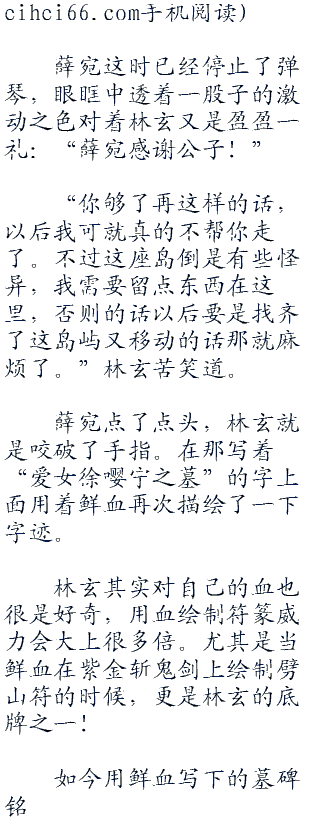 cihci66.com手机阅读）
薛宛这时已经停止了弹
琴，眼眶中透着一股子的激
动之色对着林玄又是盈盈一
礼：“薛宛感谢公子！”
“你够了再这样的话，
以后我可就真的不帮你走
了。不过这座岛倒是有些怪
异，我需要留点东西在这
里，否则的话以后要是找齐
了这岛屿又移动的话那就麻
烦了。”林玄苦笑道。
薛宛点了点头，林玄就
是咬破了手指。在那写着
“爱女徐嘤宁之墓”的字上
面用着鲜血再次描绘了一下
字迹。
林玄其实对自己的血也
很是好奇，用血绘制符篆威
力会大上很多倍。尤其是当
鲜血在紫金斩鬼剑上绘制劈
山符的时候，更是林玄的底
牌之一！
如今用鲜血写下的墓碑
铭